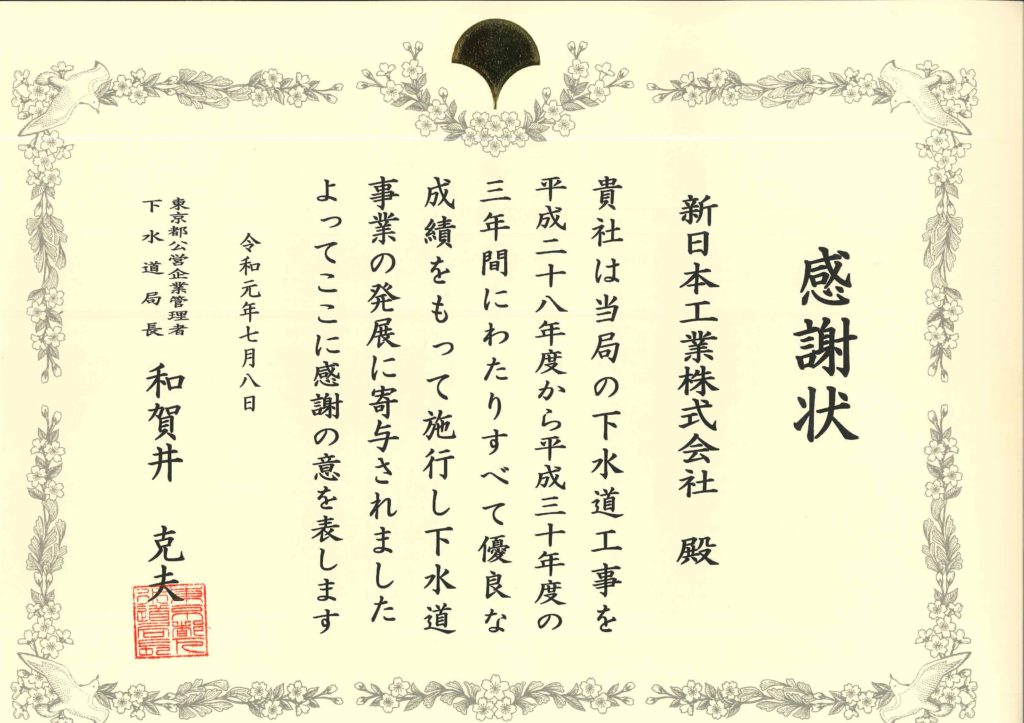 感謝状
新日本工業株式会社 殿
貴社は当局の下水道工事を
平成二十八年度から平成三十年度の
三年間にわたりすべて優良な
成績をもって施行し下水道
事業の発展に寄与されました
よってここに感謝の意を表します
令和元年七月八日
東京都公営企業管理者
下水道局長
和賀井 克夫